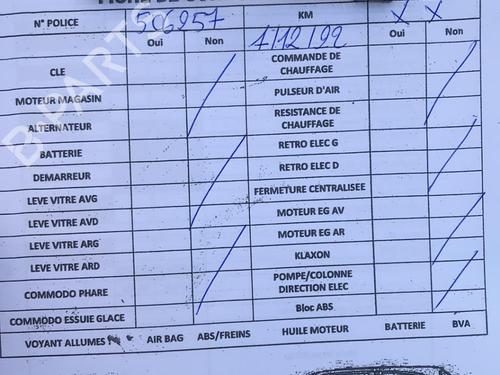 N° POLICE 506257 KM X X
Oui Non 1/12/99 Oui Non
CLE COMMANDE DE CHAUFFAGE
MOTEUR MAGASIN PULSEUR D'AIR
ALTERNATEUR RESISTANCE DE CHAUFFAGE
BATTERIE RETRO ELEC G
DEMARREUR RETRO ELEC D
LEVE VITRE AVG FERMETURE CENTRALISEE
LEVE VITRE AVD MOTEUR EG AV
LEVE VITRE ARG MOTEUR EG AR
LEVE VITRE ARD KLAXON
COMMODO PHARE POMPE/COLONNE DIRECTION ELEC
COMMODO ESSUIE GLACE Bloc ABS
VOYANT ALLUMES AIR BAG ABS/FREINS HUILE MOTEUR BATTERIE BVA
B-PARTS